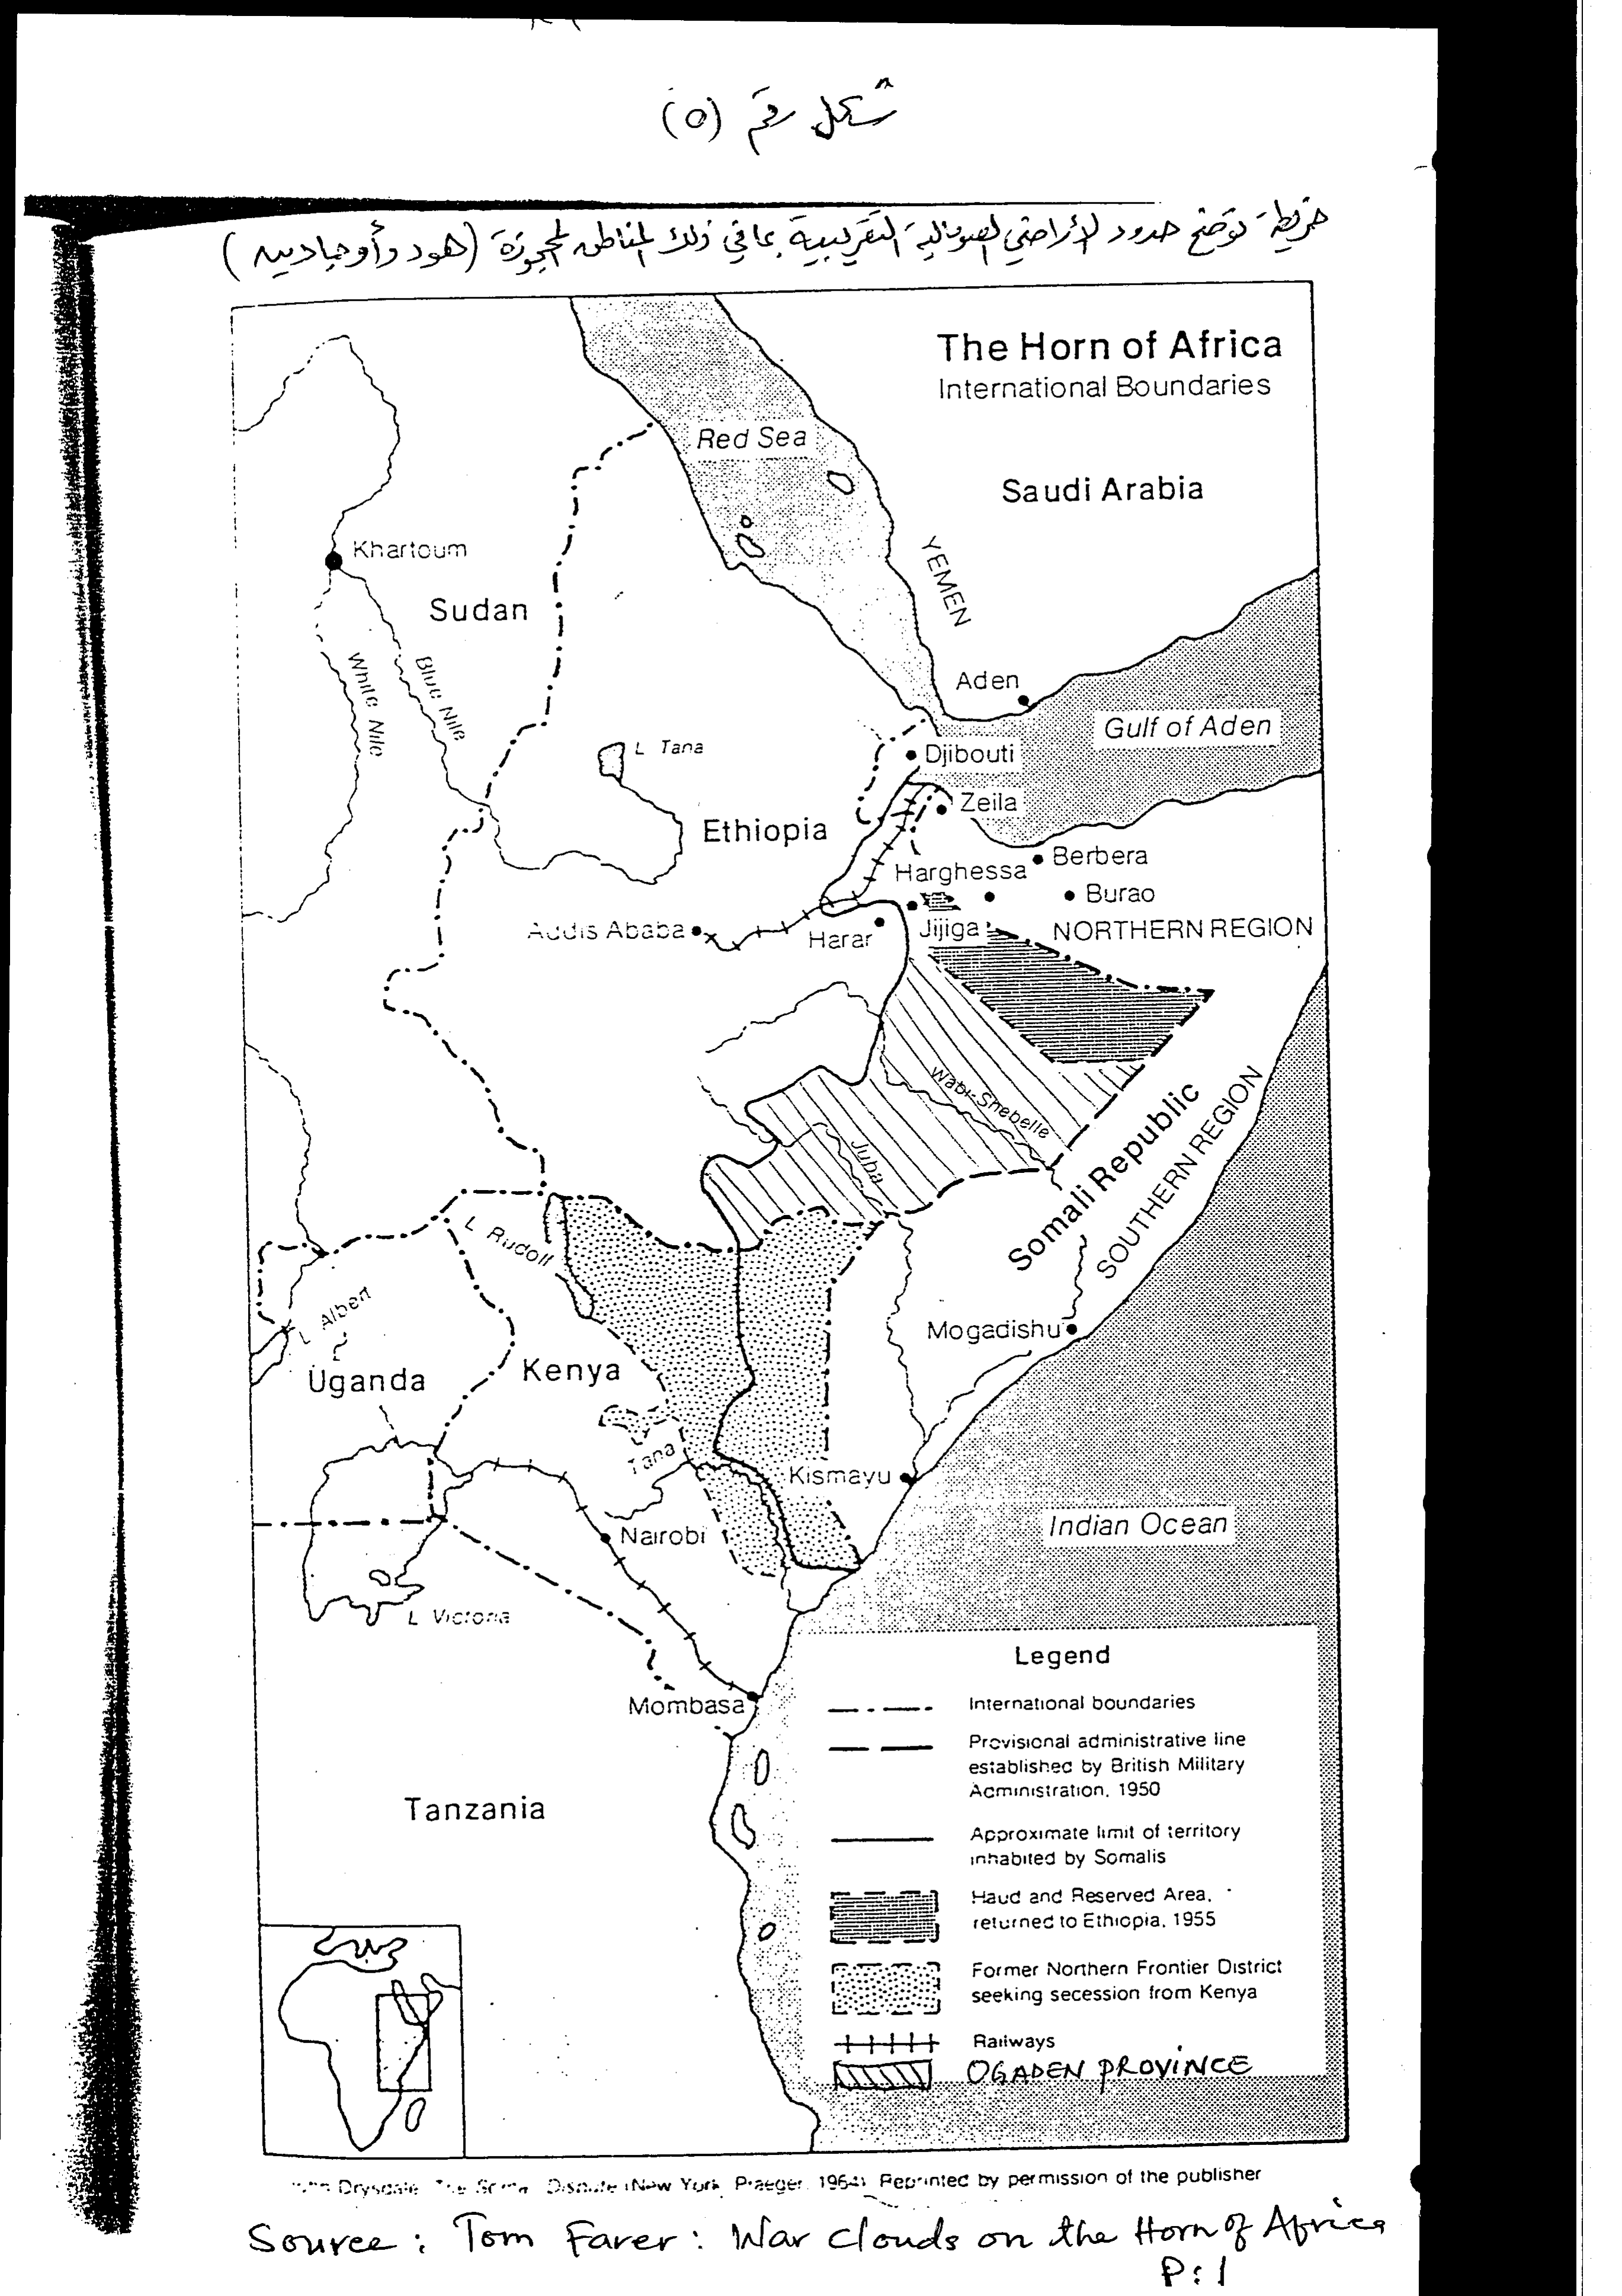 شكل رقم (٥)
خريطة توضح حدود الأراضي الصومالية التقريبية بما في ذلك المناطق المحجوزة (هود وأوجادين)
The Horn of Africa
International Boundaries
Red Sea
Saudi Arabia
YEMEN
Khartoum
Sudan
White Nile
Blue Nile
Aden
Gulf of Aden
L Tana
Djibouti
Zeila
Ethiopia
Berbera
Harghessa
Burao
Addis Ababa
Harar
Jijiga
NORTHERN REGION
Wabi-Shebelle
Juba
Somali Republic
SOUTHERN REGION
L Rudolf
L Albert
Uganda
Kenya
Mogadishu
Tana
Kismayu
Nairobi
Indian Ocean
L Victoria
Mombasa
Tanzania
Legend
International boundaries
Provisional administrative line
established by British Military
Administration, 1950
Approximate limit of territory
inhabited by Somalis
Haud and Reserved Area,
returned to Ethiopia, 1955
Former Northern Frontier District
seeking secession from Kenya
Railways
OGADEN PROVINCE
Drysdale Dispute (New York, Praeger, 1964) Reprinted by permission of the publisher
Source : Tom Farer : War Clouds on the Horn of Africa
P : 1